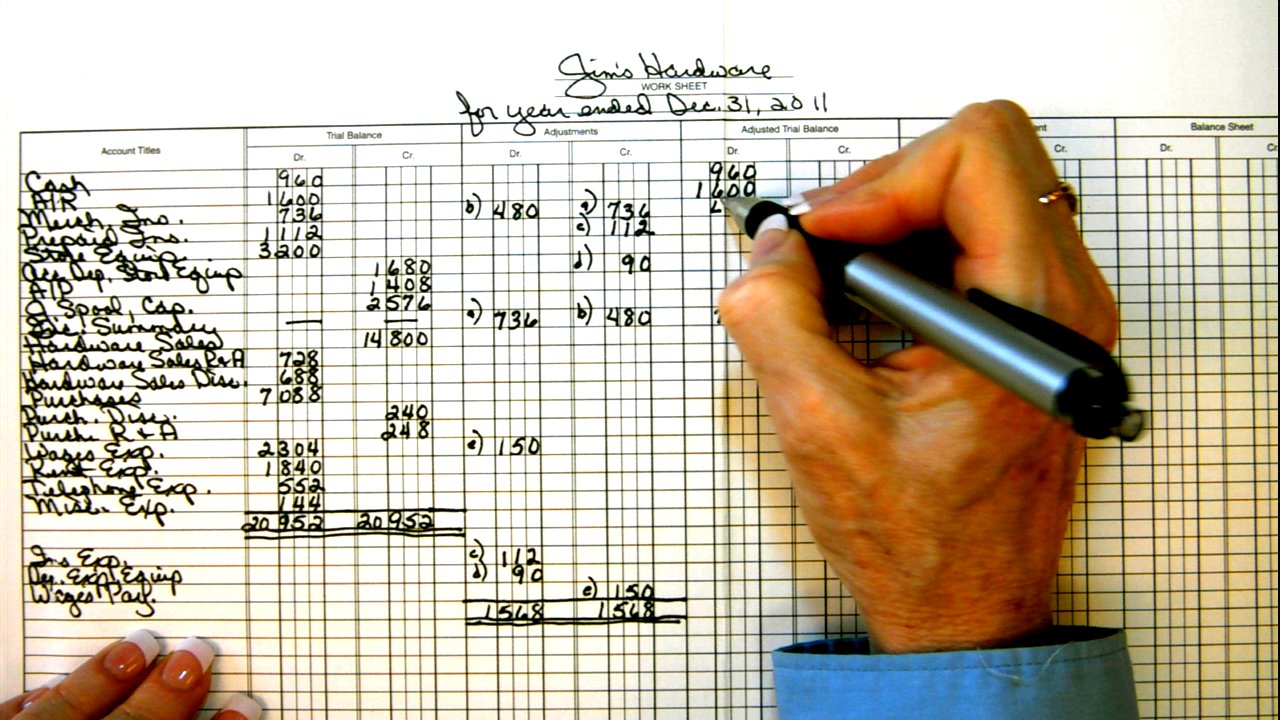 Jim's Hardware
WORK SHEET
for year ended Dec. 31, 2011
Trial Balance Adjustments Adjusted Trial Balance Balance Sheet
Account Titles Dr. Cr. Dr. Cr. Dr. Cr. Cr. Dr.
Cash 960 960
A/R 1600 1600
Merch. Ins. 736 b) 480 a) 736
Prepaid Ins. 1112 c) 112
Store Equip. 3200
Acc. Dep. Store Equip 1680 d) 90
A/P 1408
J. Spool, Cap. 2576
Summary — — a) 736 b) 480
Hardware Sales 14800
Hardware Sales R&A 728
Hardware Sales Disc. 688
Purchases 7088
Purch. Disc. 240
Purch. R & A 248
Wages Exp. 2304 e) 150
Rent Exp. 1840
Telephone Exp. 552
Misc. Exp. 144
20952 20952
Ins. Exp. c) 112
Exp. Equip d) 90
Wages Pay. e) 150
1568 1568